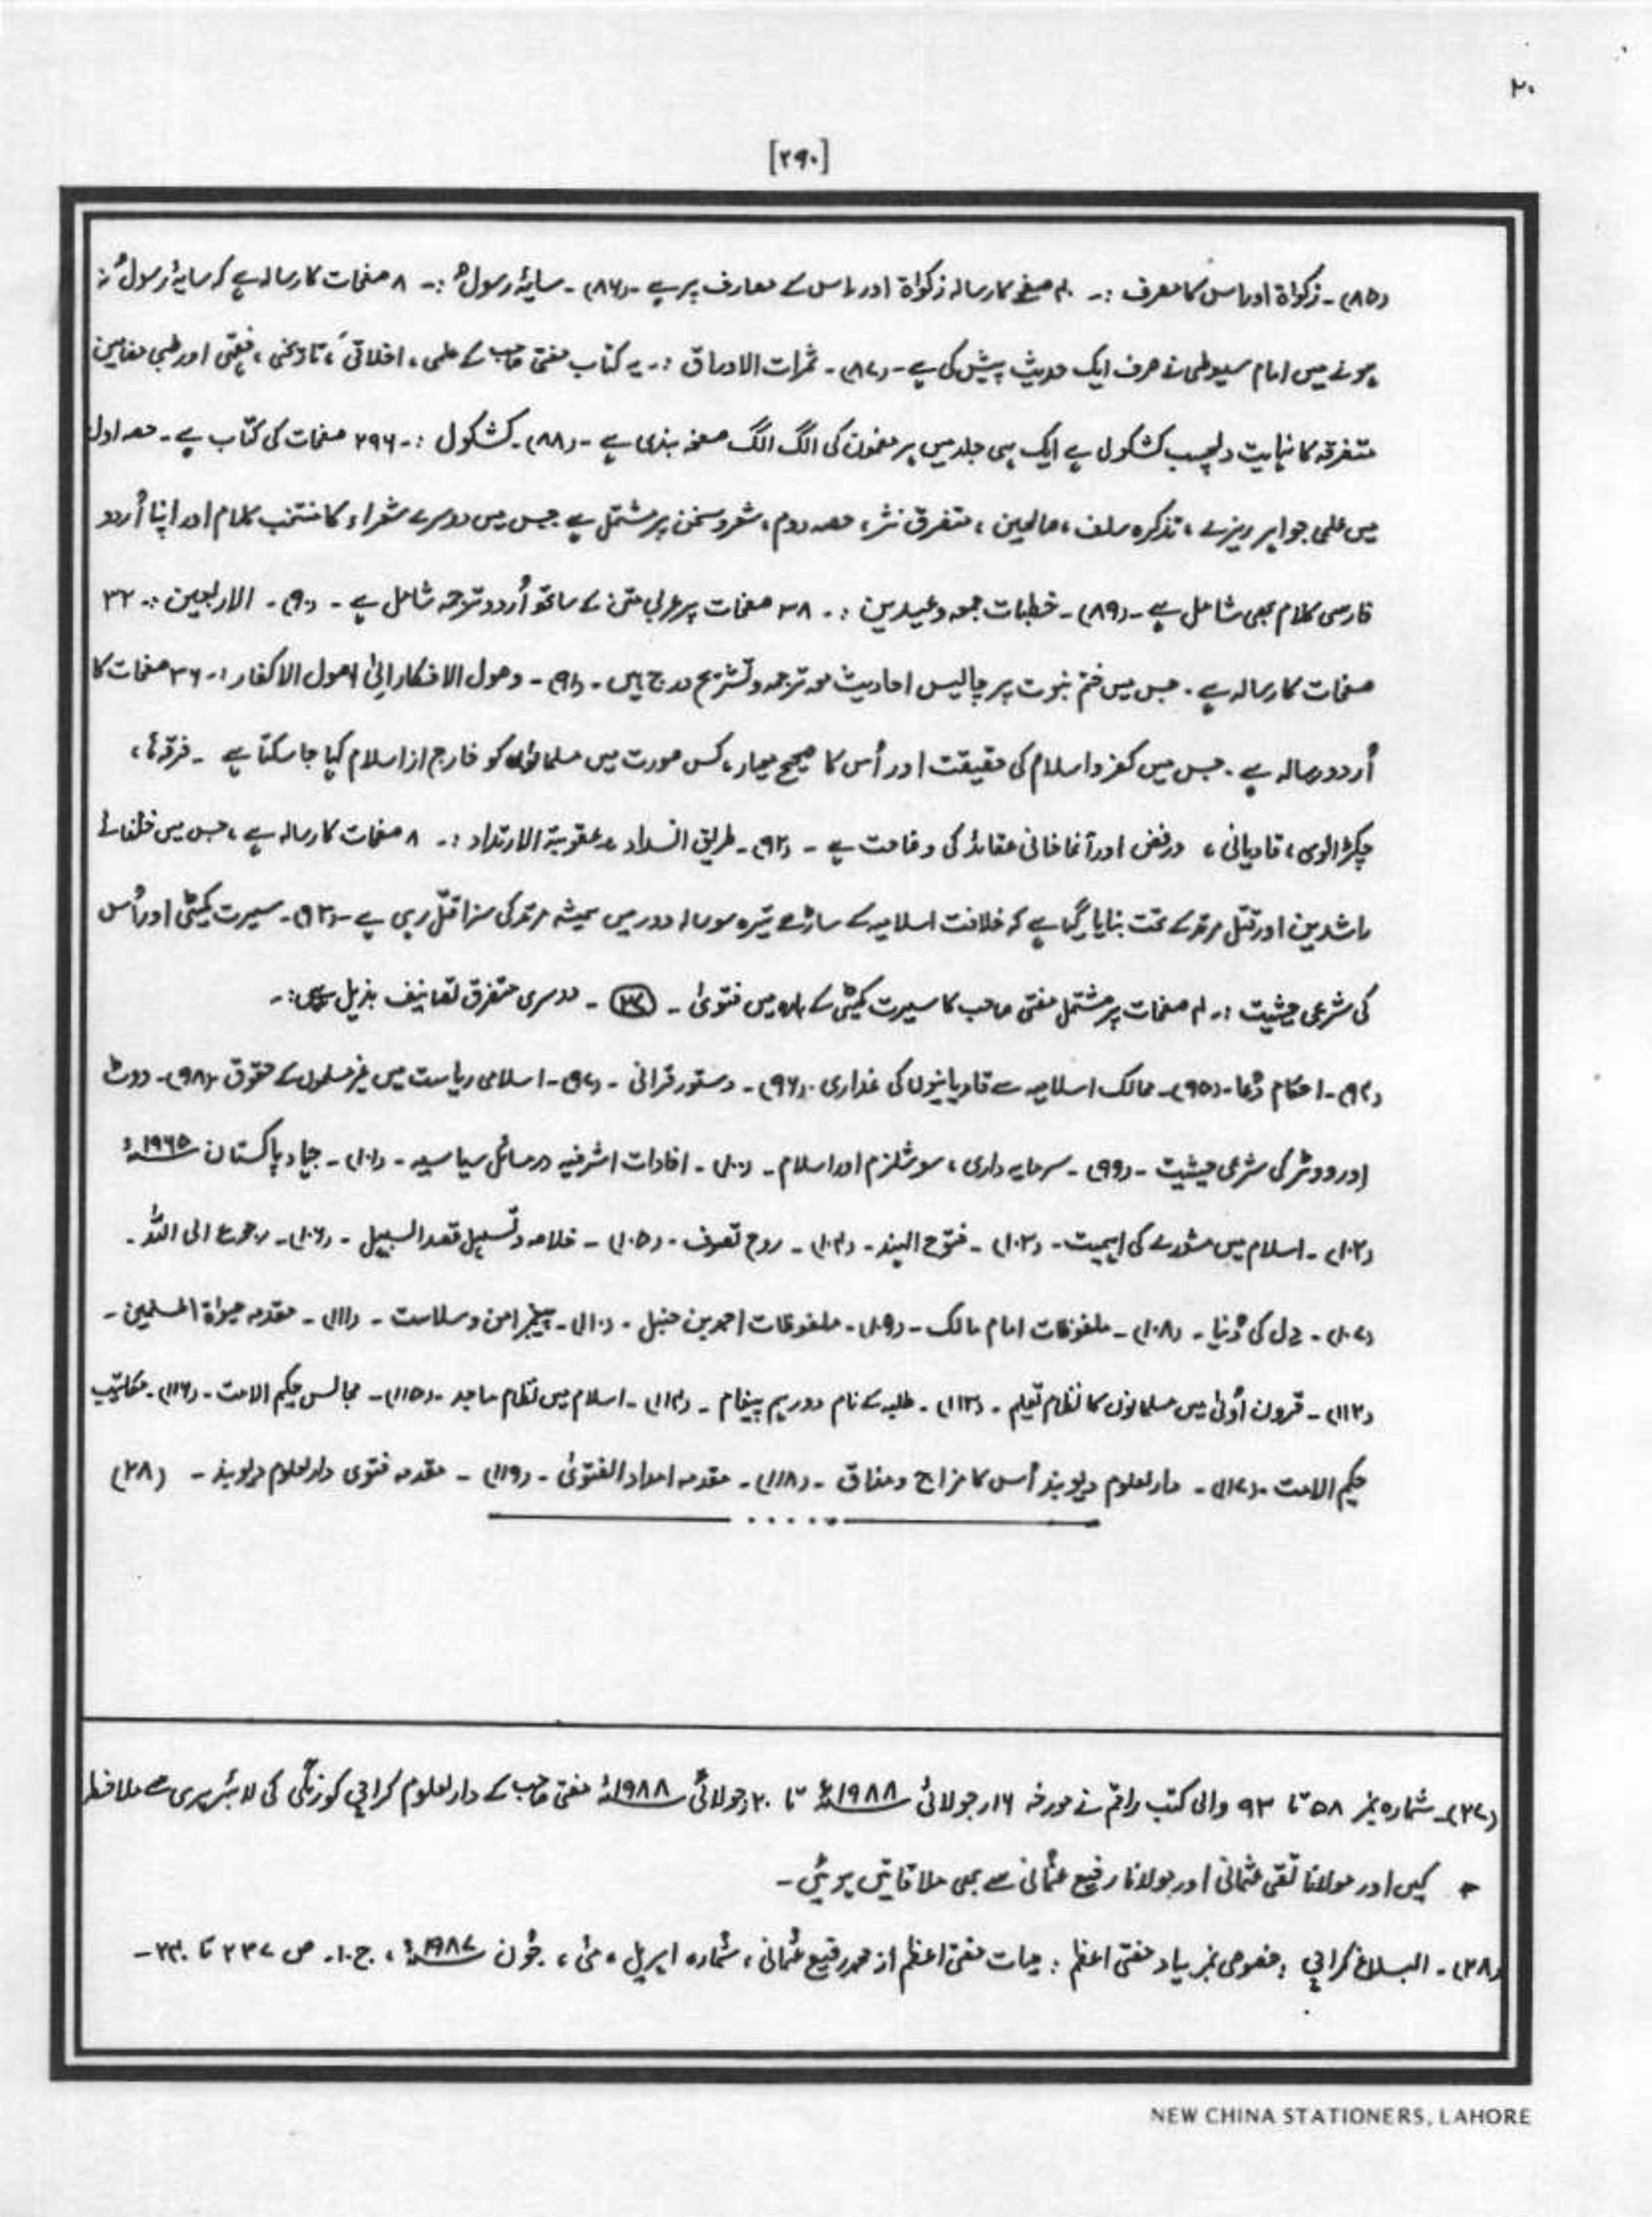 ۲۰
[۲۹۰]
(۸۵)۔ زکواۃ اور اس کا مصرف :۔ ۴۰ صفحے کا رسالہ زکواۃ اور اس کے معارف پر ہے ۔ (۸۶)۔ سایۂ رسولؐ :۔ ۸ صفحات کا رسالہ ہے کہ سایۂ رسولؐ نہ
ہونے میں امام سیوطی نے صرف ایک حدیث پیش کی ہے ۔ (۸۷)۔ ثمرات الاوراق :۔ یہ کتاب مفتی صاحب کے علمی ، اخلاقی ، تاریخی ، فقہی اور طبی مضامین
متفرقہ کا نہایت دلچسپ کشکول ہے ایک ہی جلد میں ہر مضمون کی الگ الگ صفحہ بندی ہے ۔ (۸۸)۔ کشکول :۔ ۲۹۶ صفحات کی کتاب ہے ۔ حصہ اول
میں علمی جواہر ریزے ، تذکرہ سلف ، صالحین ، متفرق نثر ، حصہ دوم ، شعر و سخن پر مشتمل ہے جس میں دوسرے شعراء کا منتخب کلام اور اپنا اُردو
فارسی کلام بھی شامل ہے ۔ (۸۹)۔ خطبات جمعہ و عیدین :۔ ۳۸ صفحات پر عربی متن کے ساتھ اُردو ترجمہ شامل ہے ۔ (۹۰)۔ الاربعین :۔ ۳۲
صفحات کا رسالہ ہے ۔ جس میں ختم نبوت پر چالیس احادیث معہ ترجمہ و تشریح درج ہیں ۔ (۹۱)۔ وصول الافکار الیٰ اصول الاکفار :۔ ۳۶ صفحات کا
اُردو رسالہ ہے ۔ جس میں کفر و اسلام کی حقیقت اور اُس کا صحیح معیار ، کس صورت میں مسلمانوں کو خارج از اسلام کیا جا سکتا ہے ۔ فرقہ ہائے
چکڑالوی ، قادیانی ، ورفض اور آغا خانی عقائد کی وضاحت ہے ۔ (۹۲)۔ طریق السداد عقوبتہ الارتداد :۔ ۸ صفحات کا رسالہ ہے ، جس میں خلفائے
راشدین اور قتل مرتد کے تحت بتایا گیا ہے کہ خلافت اسلامیہ کے ساڑھے تیرہ سو سالہ دور میں ہمیشہ مرتد کی سزا قتل رہی ہے ۔ (۹۳)۔ سیرت کمیٹی اور اُس
کی شرعی حیثیت :۔ ۴ صفحات پر مشتمل مفتی صاحب کا سیرت کمیٹی کے بارہ میں فتویٰ ۔ (۳۷) ۔ دوسری متفرق تصانیف بذیل ہیں :۔
(۹۴)۔ احکام دُعا ۔ (۹۵)۔ ممالک اسلامیہ سے قادیانیوں کی غداری ۔ (۹۶)۔ دستور قرانی ۔ (۹۷)۔ اسلامی ریاست میں غیر مسلموں کے حقوق ۔ (۹۸)۔ ووٹ
اور ووٹر کی شرعی حیثیت ۔ (۹۹)۔ سرمایہ داری ، سوشلزم اور اسلام ۔ (۱۰۰)۔ افادات اشرفیہ در مسائل سیاسیہ ۔ (۱۰۱)۔ جہاد پاکستان ۱۹۶۵ء
(۱۰۲)۔ اسلام میں مشورے کی اہمیت ۔ (۱۰۳)۔ فتوح الہند ۔ (۱۰۴)۔ روح تصوف ۔ (۱۰۵)۔ خلاصہ و تسہیل قصد السبیل ۔ (۱۰۶)۔ رجوع الی اللّٰہ ۔
(۱۰۷)۔ دل کی دُنیا ۔ (۱۰۸)۔ ملفوظات امام مالک ۔ (۱۰۹)۔ ملفوظات احمد بن حنبل ۔ (۱۱۰)۔ پیغمبر امن و سلامت ۔ (۱۱۱)۔ مقدمہ حیواۃ المسلمین ۔
(۱۱۲)۔ قرون اُولیٰ میں مسلمانوں کا نظام تعلیم ۔ (۱۱۳)۔ طلبہ کے نام دو ریم پیغام ۔ (۱۱۴)۔ اسلام میں نظام مساجد ۔ (۱۱۵)۔ مجالس حکیم الامت ۔ (۱۱۶)۔ مکاتیب
حکیم الامت ۔ (۱۱۷)۔ دارلعلوم دیوبند اُس کا مزاج و مذاق ۔ (۱۱۸)۔ مقدمہ امداد الفتویٰ ۔ (۱۱۹)۔ مقدمہ فتوی دارلعلوم دیوبند ۔ (۳۸)
(۳۷)۔ شمارہ نمبر ۵۸ تا ۹۳ والی کتب راقم نے مورخہ ۱۶ر جولائی ۱۹۸۸ء تا ۲۰ر جولائی ۱۹۸۸ء مفتی صاحب کے دارلعلوم کراچی کورنگی کی لائبریری سے ملاحظہ
کیں اور مولانا تقی عثمانی اور مولانا رفیع عثمانی سے بھی ملاقاتیں ہوئیں ۔
(۳۸)۔ البلاغ کراچی ، خصوصی نمبر بیاد مفتی اعظم : حیات مفتی اعظم از محمد رفیع عثمانی ، شمارہ اپریل ، مئی ، جُون ۱۹۸۷ء ، ج ۱۰ ۔ ص ۲۳۷ تا ۲۴۰ ۔
NEW CHINA STATIONERS, LAHORE